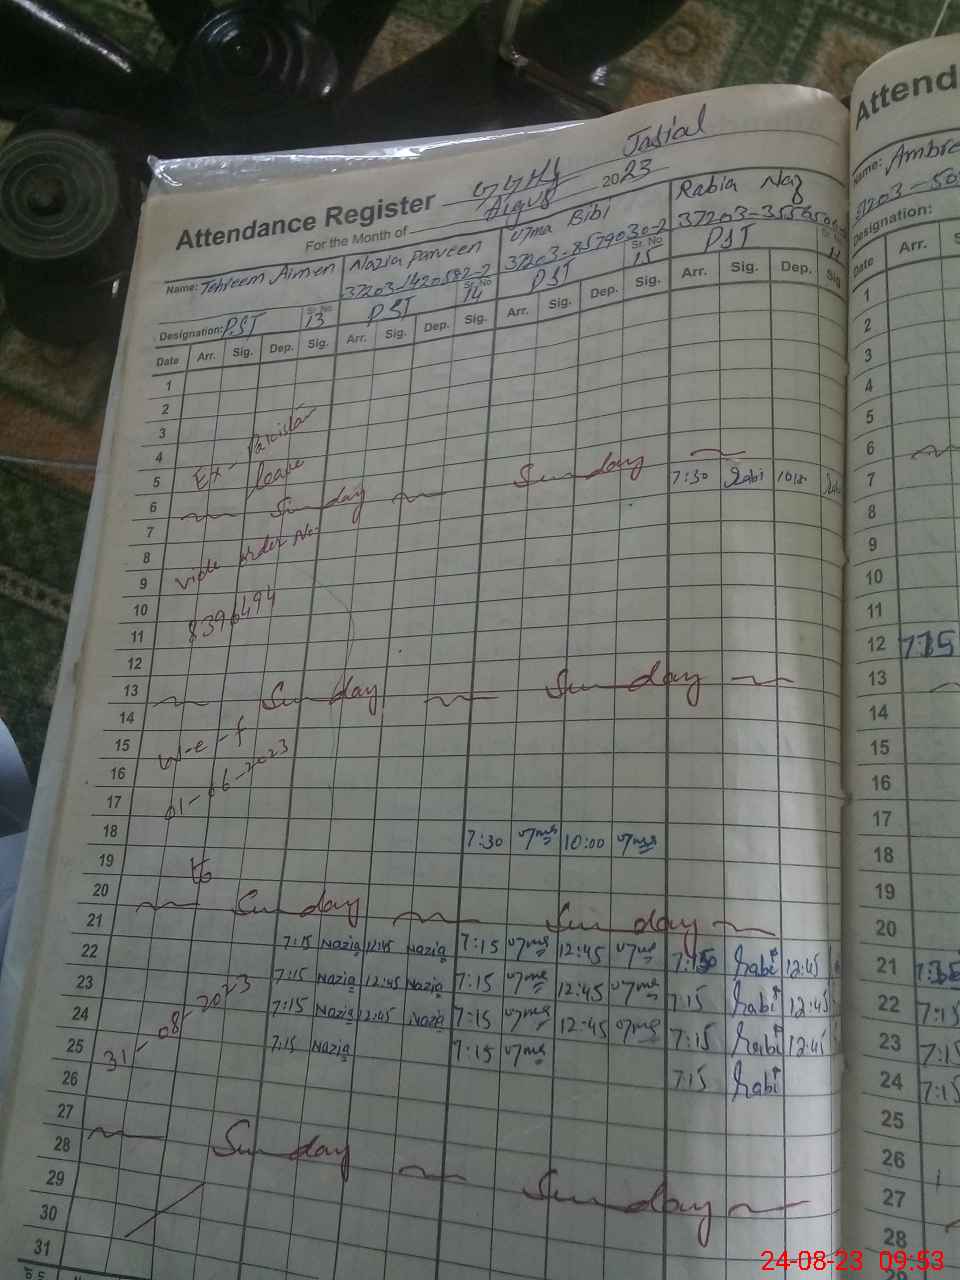 Attendance Register GGHS Jasial
For the Month of August 2023
Name: Tehreem Aimen Nazia Parveen Uzma Bibi Rabia Naz
37203-1420592-2 37203-8579030-2
Designation: PST Sr. No 13 PST Sr. No 14 PST Sr. No 15 PST
Date Arr. Sig. Dep. Sig. Arr. Sig. Dep. Sig. Arr. Sig. Dep. Sig. Arr. Sig. Dep. Sig
1
2
3
4
5 Ex-Pakistan leave
6 Sunday Sunday
7 7:30 Rabi
8
9 vide order No
10
11 8396494
12
13 Sunday Sunday
14
15 W-e-f
16
17 01-06-2023
18 7:30 Uzma 10:00 Uzma
19 to
20
21 Sunday Sunday
22 7:15 Nazia 12:45 Nazia 7:15 Uzma 12:45 Uzma Rabi 12:45
23 7:15 Nazia 12:45 Nazia 7:15 Uzma 12:45 Uzma 7:15 Rabi 12:45
24 7:15 Nazia 12:45 Nazia 7:15 Uzma 12:45 Uzma 7:15 Rabi 12:45
25 31-08-2023 7:15 Nazia 7:15 Uzma 7:15 Rabi
26
27
28 Sunday Sunday
29
30
31
Attend
Name: Ambre
37203-50
Designation:
Date Arr.
1
2
3
4
5
6
7
8
9
10
11
12 7:15
13
14
15
16
17
18
19
20
21
22 7:15
23 7:15
24 7:15
25
26
27
28
24-08-23 09:53